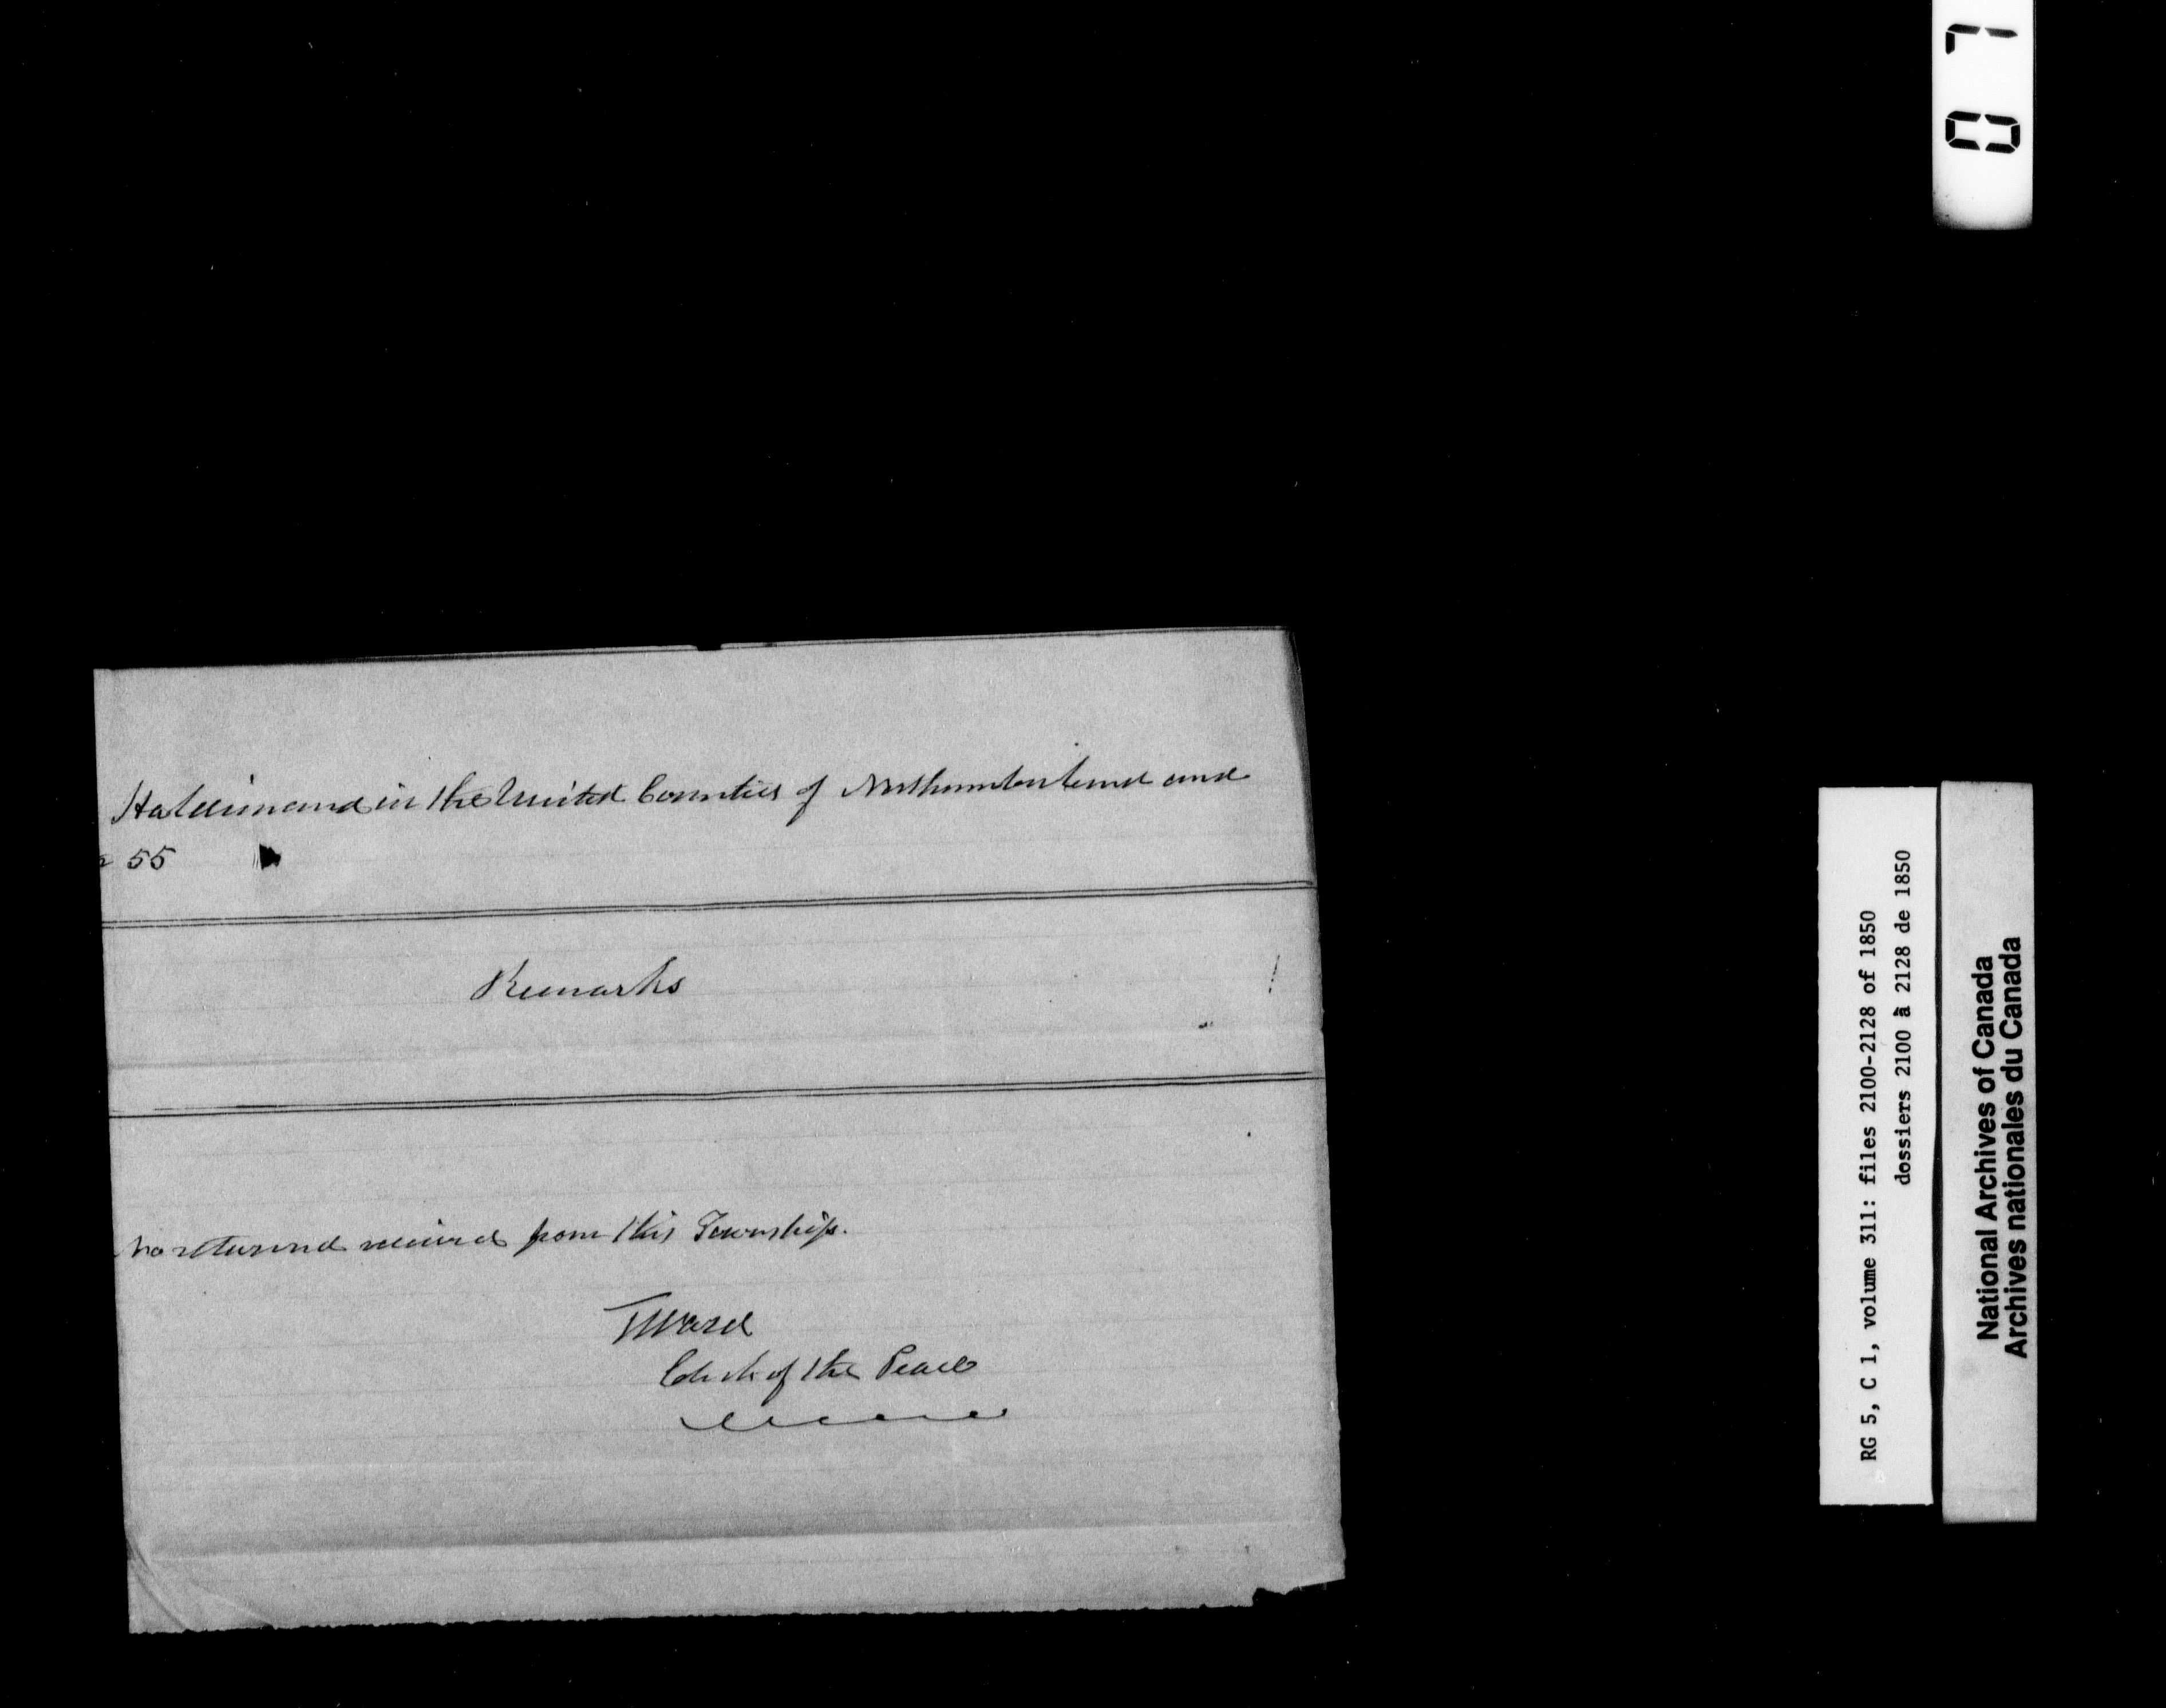 Haldimand in the United Counties of Northumberland and
55
Remarks
no returns received from this Township.
TWard
Clerk of the Peace
07
RG 5, C 1, volume 311: files 2100-2128 of 1850
dossiers 2100 à 2128 de 1850
National Archives of Canada
Archives nationales du Canada